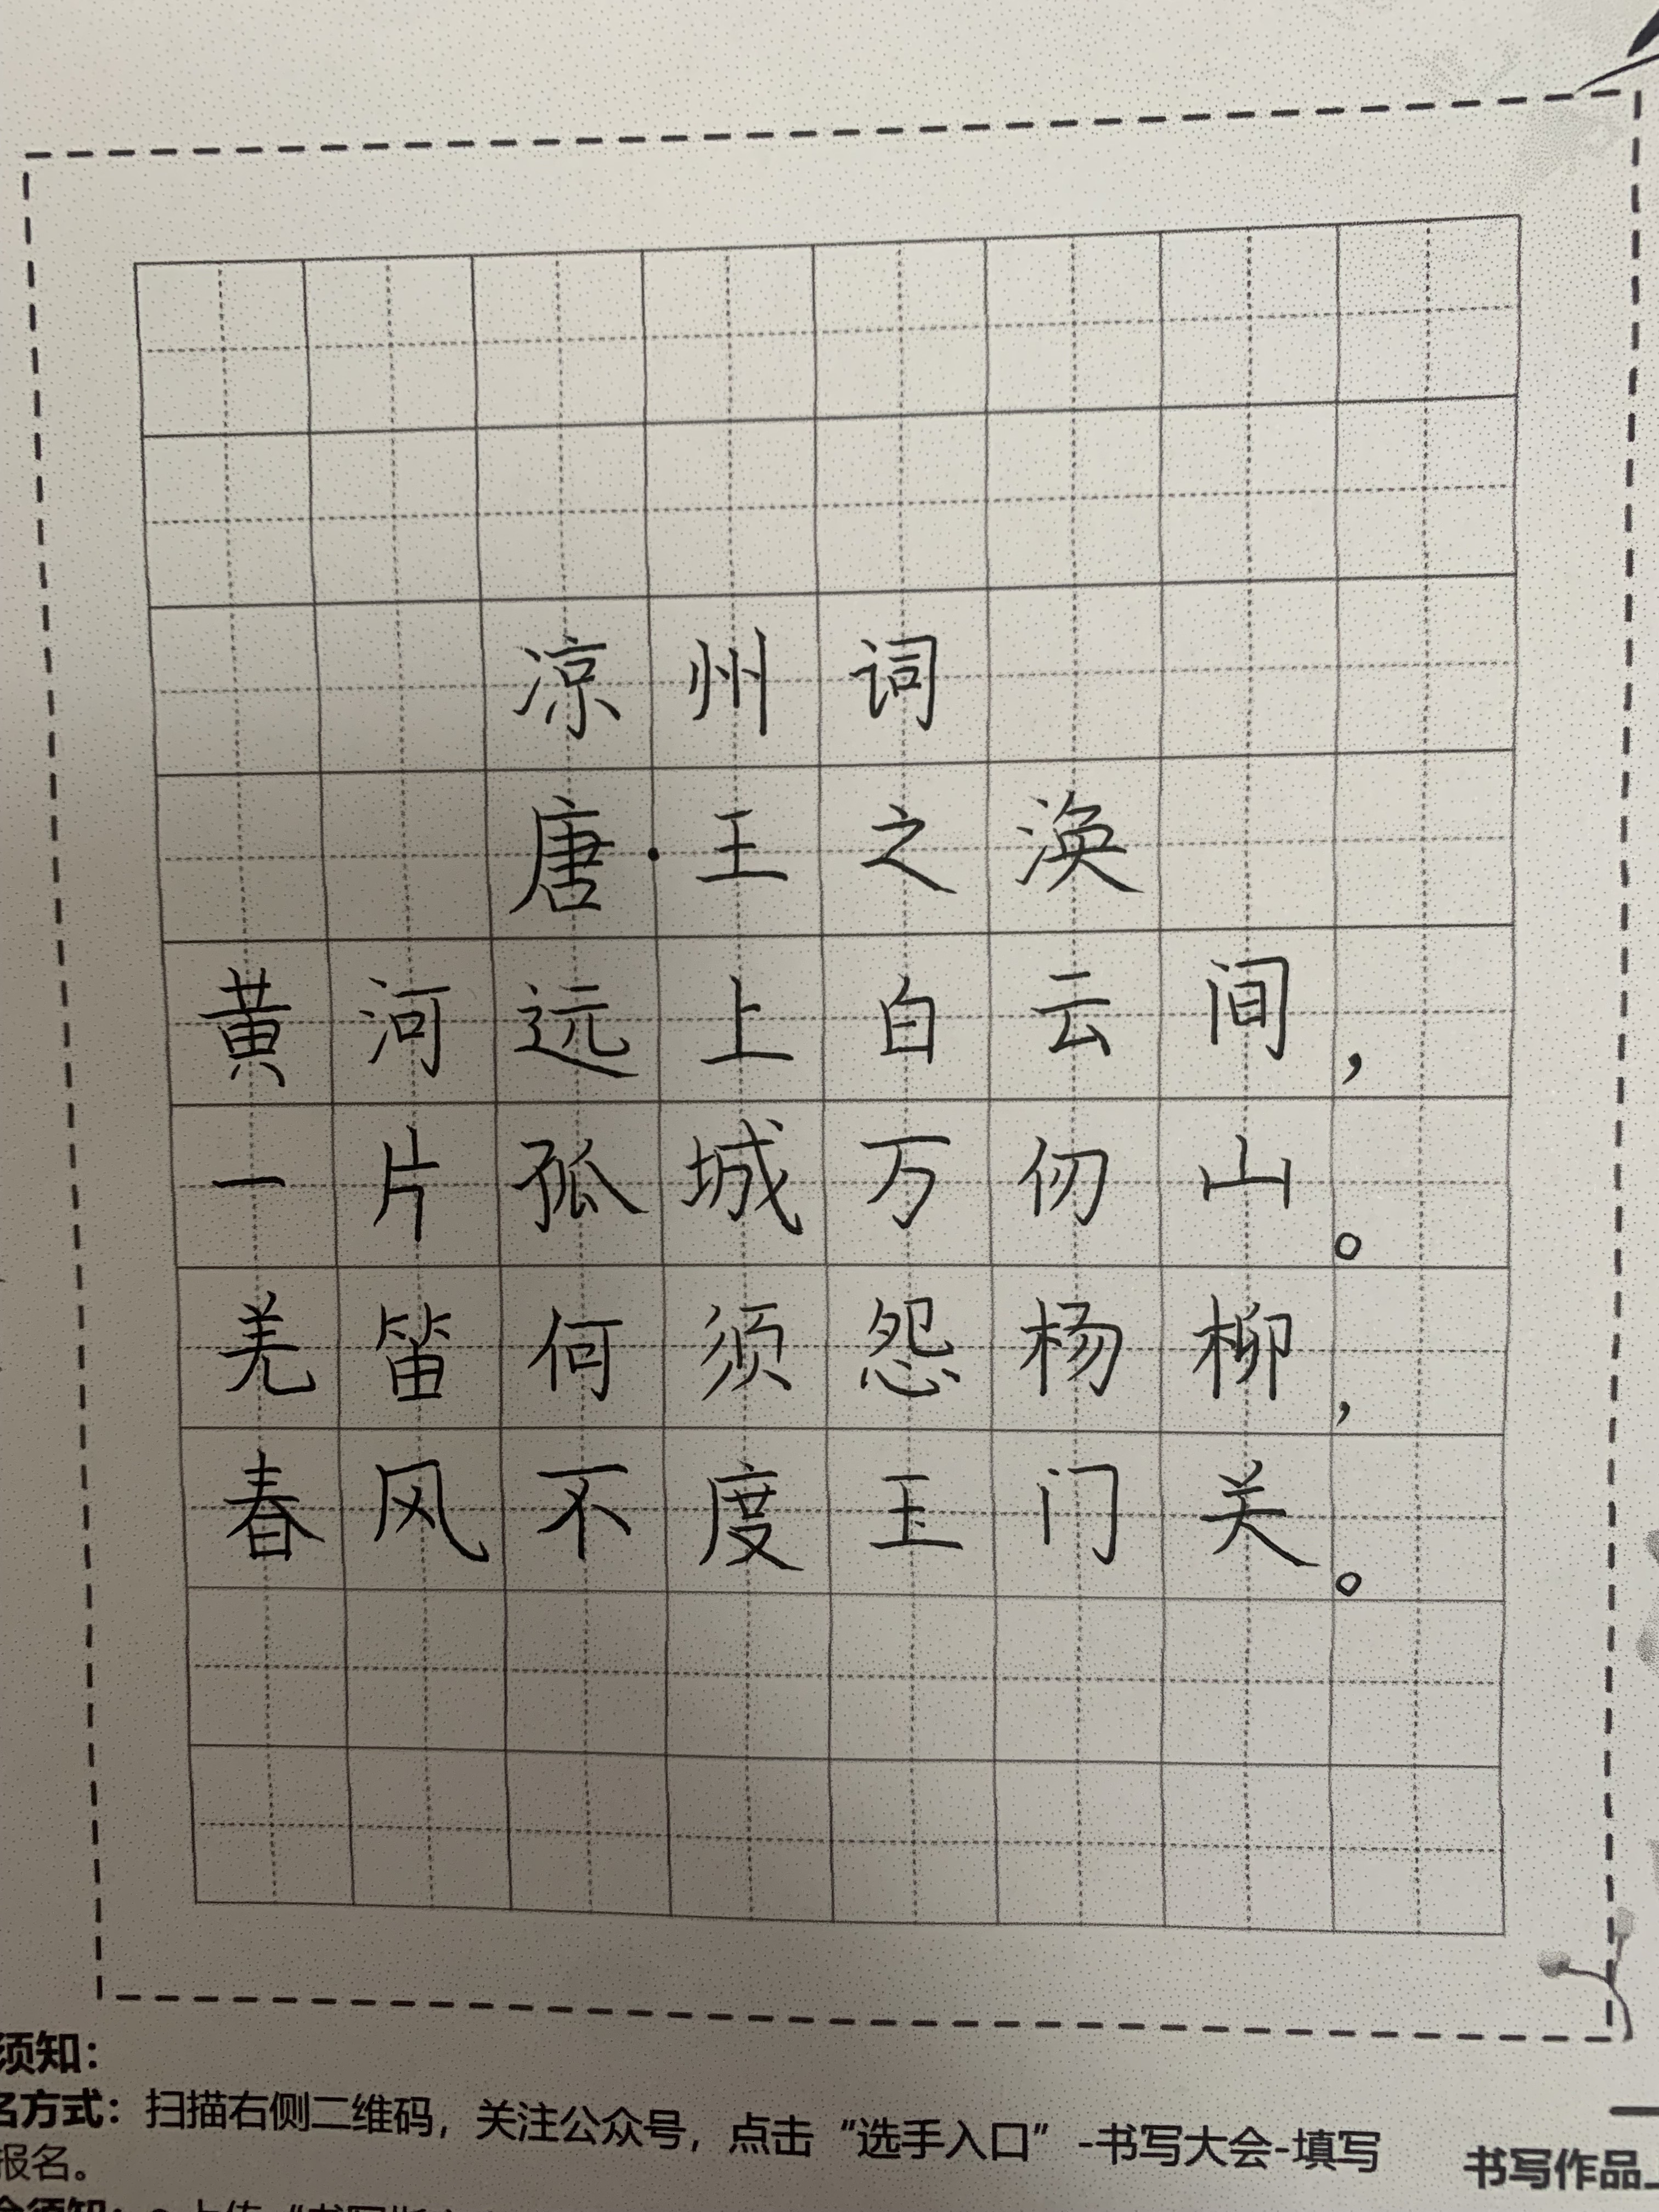 凉州词
唐·王之涣
黄河远上白云间，
一片孤城万仞山。
羌笛何须怨杨柳，
春风不度玉门关。
须知：
名方式：扫描右侧二维码，关注公众号，点击“选手入口”-书写大会-填写
报名。
书写作品